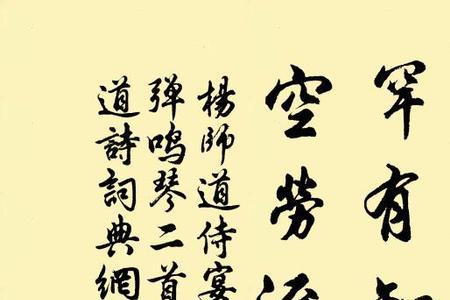 罕有知
空劳流
杨师道侍宴
弹鸣琴二首
道詩詞典網